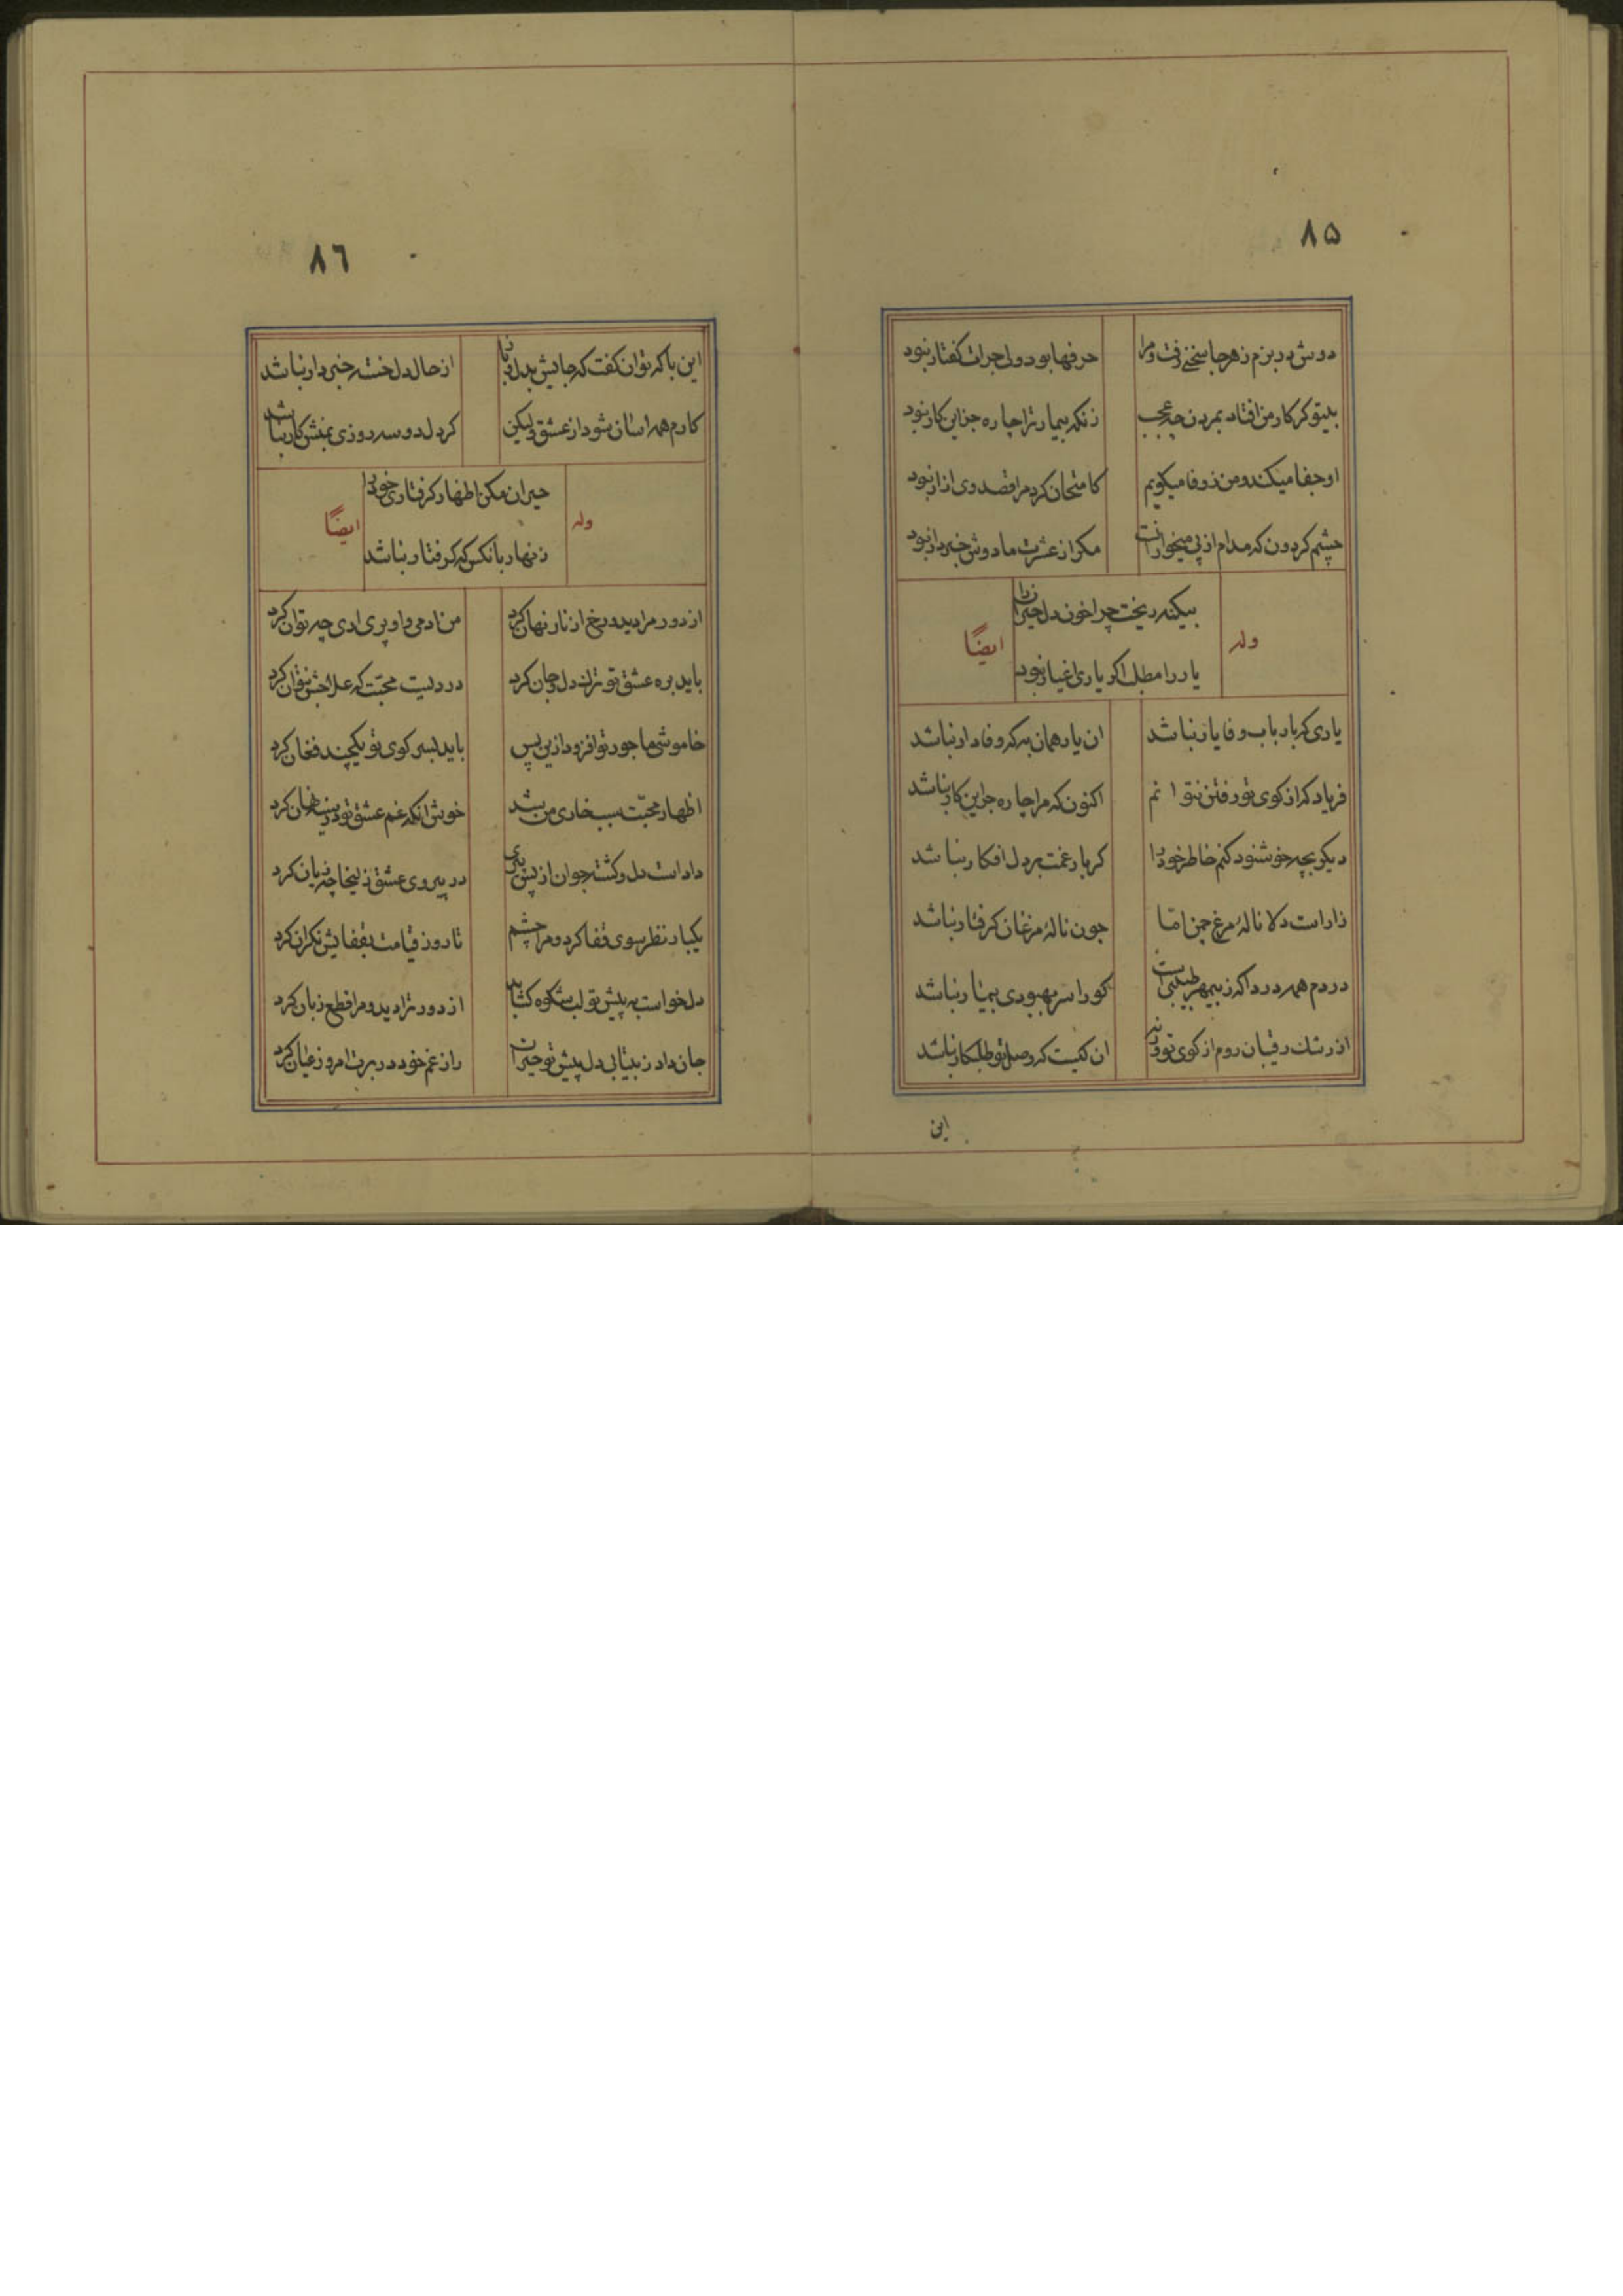 ۸۵
دوش در بزم زهر جا سخنی رفت و مرا
حرفها بود ولی جرات کفتار نبود
بیتو کر کار من افتاد بمردن چه عجب
زنکه بیمار ترا چاره جز این کار نبود
او جفا میکند و من ز وفا میکویم
کامتحان کردم مرا قصد وی ازار نبود
چشم کردون که مدام از پی میخوارانست
مکر از عشرت ما دوش خبردار نبود
وله
بیکنه ریخت چرا خون دل حیرانرا
یار را مطلب اکر یاری اغیار نبود
ایضاً
یاری که بارباب وفا یار نباشد
ان یار همان به که وفادار نباشد
فریاد که از کوی تو رفتن نتوانم
اکنون که مرا چاره جز این کار نباشد
دیکر بچه خوشنود کنم خاطر خود را
کر بار غمت بر دل افکار نباشد
زار است دلا نالهٔ مرغ چمن اما
چون نالهٔ مرغان کرفتار نباشد
دردم همه درد اکه ز بیمهر طبیبی است
کو را سر بهبودی بیمار نباشد
از رشک رقیبان روم از کوی تو ورنه
ان کیست که وصل تو طلبکار نباشد
این
۸٦
این با که توان کفت که جایش بدل و با
از حال دل خسته خبردار نباشد
کارم همه اسان شود از عشق ولیکن
کر دل دو سه روزی بمنش کار نباشد
وله
حیران مکن اظهار کرفتاری خود را
زنهار بانکس که کرفتار نباشد
ایضاً
از دور مرا دید و رخ از ناز نهان کرد
من ادمی و او پری ادی چه توان کرد
باید بره عشق تو ترک دل و جان کرد
دردیست محبت که علاجش نتوان کرد
خاموشی ما جور تو افزود ازین پس
باید بسر کوی تو یکچند فغان کرد
اظهار محبت سبب خاری من شد
خوش انکه غم عشق تو در سینه نهان کرد
داد است دل و کشته جوان از پس پیری
در پیروی عشق زلیخا چه زیان کرد
یکبار نظر سوی قفا کرد و مرا چشم
تا روز قیامت بقفایش نکران کرد
دل خواست به پیش تو لب شکوه کشاید
از دور ترا دید و مرا قطع زبان کرد
جان داد ز بیتابی دل پیش تو حیران
راز غم خود در برت امروز عیان کرد